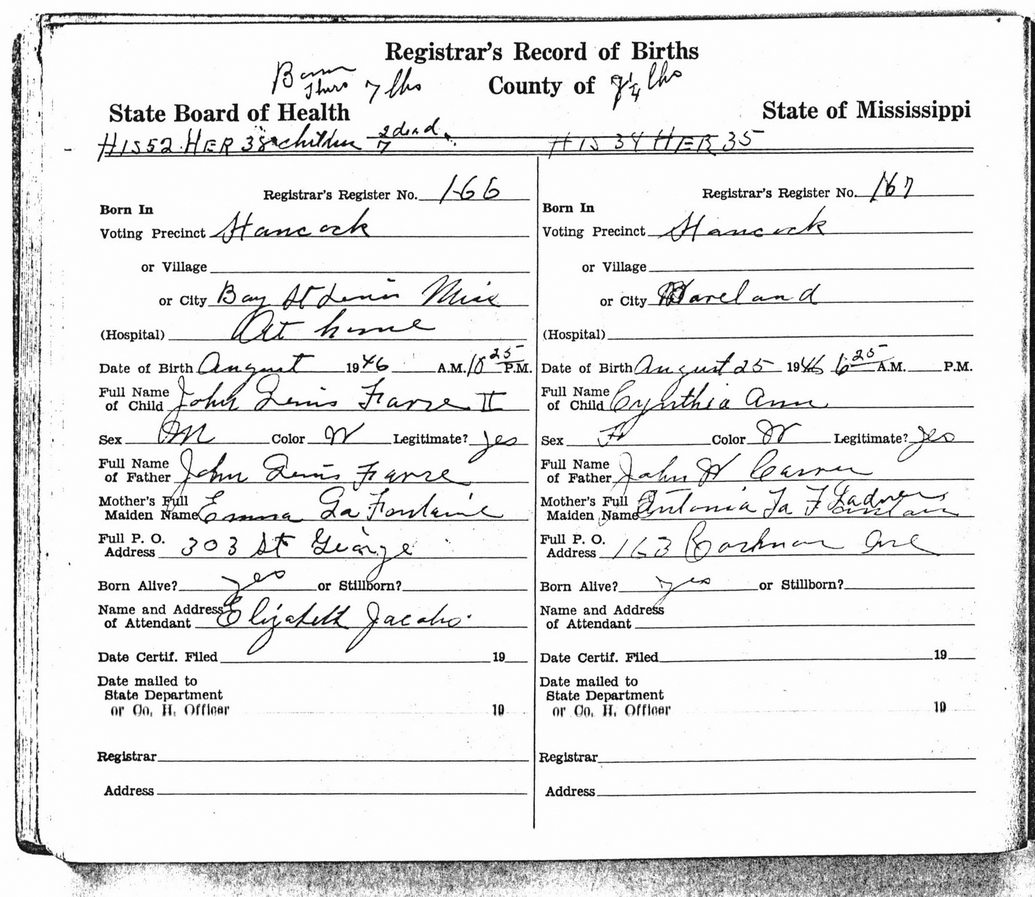 Registrar's Record of Births
Born Thurs 7 lbs County of 7 1/4 lbs
State Board of Health State of Mississippi
HIS 52 HER 38 children 2 dead 7 HIS 34 HER 35
Registrar's Register No. 166
Born In
Voting Precinct Hancock
or Village
or City Bay St Louis Miss
(Hospital) At home
Date of Birth August 1946 A.M. 10 25 P.M.
Full Name
of Child John Louis Favre II
Sex M Color W Legitimate? yes
Full Name
of Father John Louis Favre
Mother's Full
Maiden Name Emma La Fontaine
Full P. O.
Address 303 St George
Born Alive? yes or Stillborn?
Name and Address
of Attendant Elizabeth Jacobs
Date Certif. Filed 19
Date mailed to
State Department
or Co. H. Officer 19
Registrar
Address
Registrar's Register No. 167
Born In
Voting Precinct Hancock
or Village
or City Waveland
(Hospital)
Date of Birth August 25 1946 6 25 A.M. P.M.
Full Name
of Child Cynthia Ann
Sex F Color W Legitimate? yes
Full Name
of Father John W Carver
Mother's Full Ladner
Maiden Name Antonia La Fontain
Full P. O.
Address 163 Ave
Born Alive? yes or Stillborn?
Name and Address
of Attendant
Date Certif. Filed 19
Date mailed to
State Department
or Co. H. Officer 19
Registrar
Address